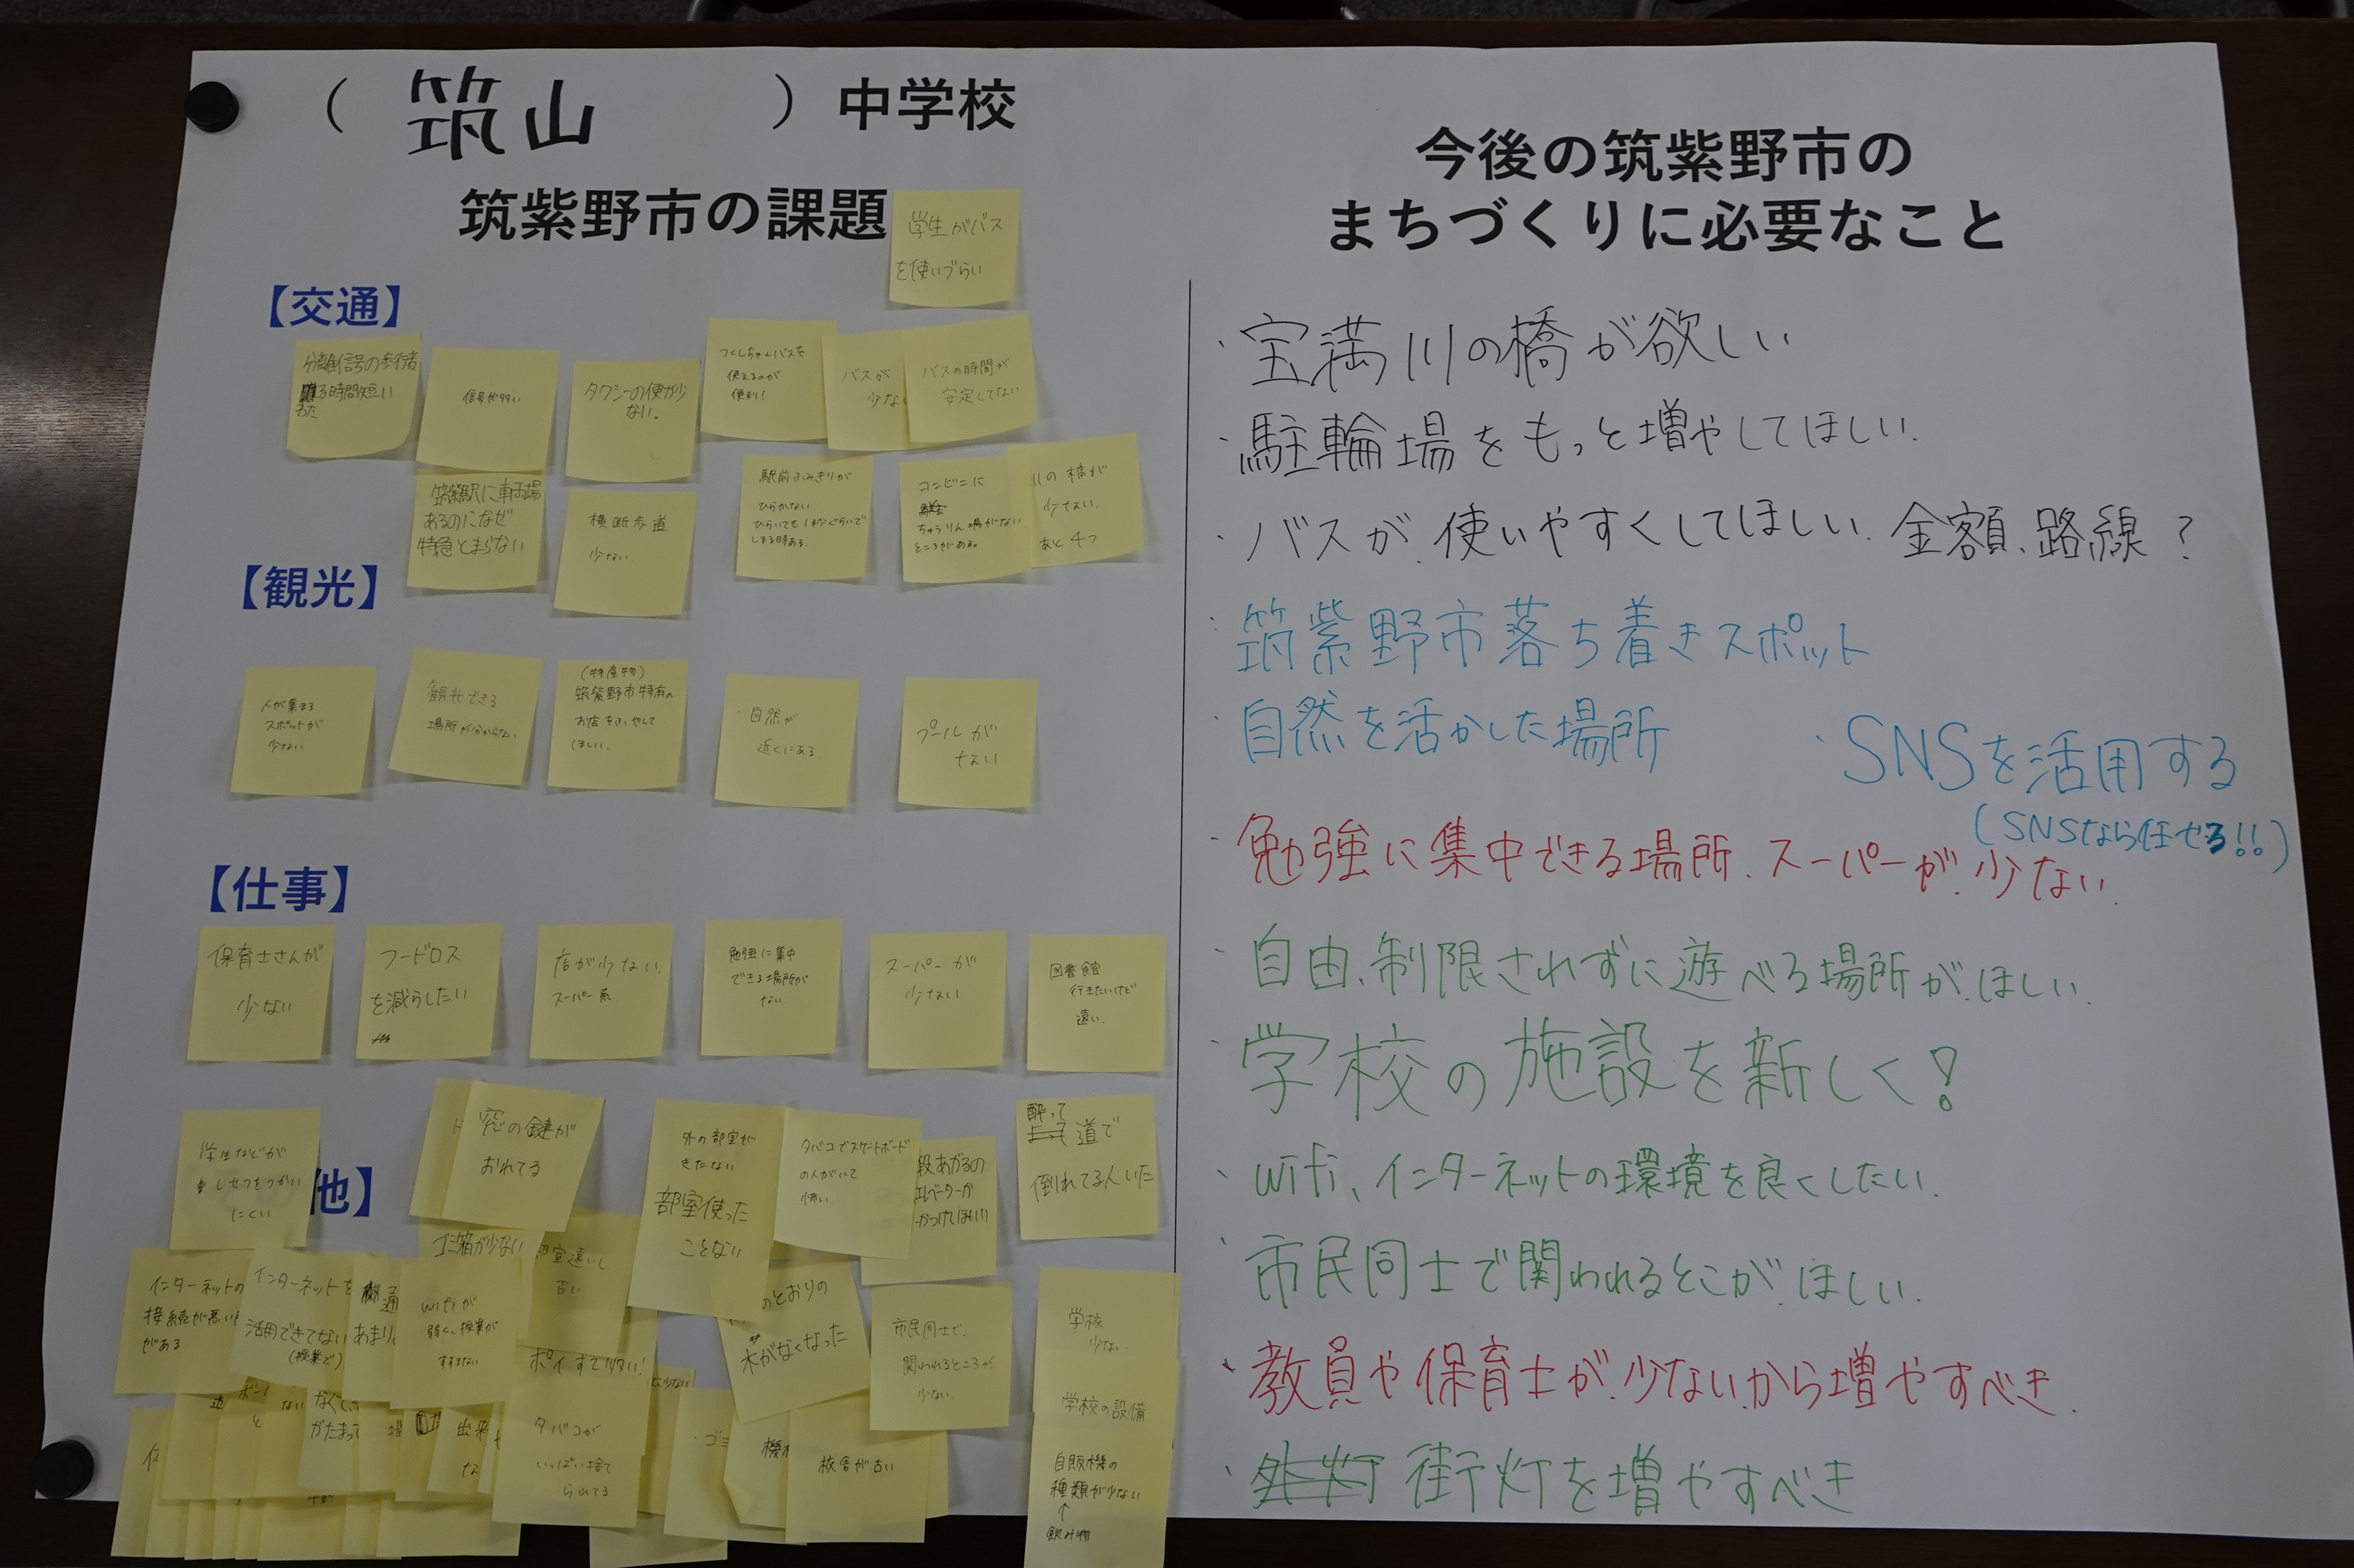 （ 筑山 ）中学校
筑紫野市の課題
学生がバス
を使いづらい
【交通】
分離信号の歩行者
る時間短い
わた
信号が多い
タクシーの便が少
ない。
つくしちゃんバスを
使えるのが
便利！
バスが
少な
バスの時間が
安定してない
筑紫駅に車両場
あるのになぜ
特急とまらない
横断歩道
少ない
駅前ふみきりが
ひらかない
ひらいても1秒ぐらいで
しまる時ある。
コンビニに
ちゅうりん場がない
ところがある。
川の橋が
少ない
あと4つ
【観光】
人が集まる
スポットが
少ない
観光できる
場所が分からない
（特産物）
筑紫野市特有の
お店をふやして
ほしい。
・自然が
近くにある
プールが
ない
【仕事】
保育士さんが
少ない
フードロス
を減らしたい
店が少ない
スーパー系
勉強に集中
できる場所が
ない
スーパーが
少ない
図書館
行きたいけど
遠い。
学生などが
しせつをつかい
にくい
他】
窓の鍵が
おれてる
外の部室が
きたない
部室使った
ことない
タバコでスケートボード
の人がいて
怖い。
段あがるの
エレベーターか
かつけてほしい
酔って
道で
倒れてる人いた
ゴミ箱が少ない
部室遠いし
古い
インターネットの
接続が悪い
がある
インターネットを
活用できてない
（授業で）
通
あまり
wifiが
弱く、授業が
すすまない
ポイすて多い！
タバコが
いっぱい捨て
られてる
のとおりの
木がなくなった
市民同士で、
関われるところが
少ない
学校
少ない
学校の設備
自販機の
種類が少ない
↑
飲み物
校舎が古い
今後の筑紫野市の
まちづくりに必要なこと
・宝満川の橋が欲しい
・駐輪場をもっと増やしてほしい.
・バスが使いやすくしてほしい. 金額、路線？
・筑紫野市落ち着きスポット
・自然を活かした場所
・SNSを活用する
（SNSなら任せろ!!）
・勉強に集中できる場所、スーパーが少ない.
・自由、制限されずに遊べる場所がほしい.
・学校の施設を新しく！
・wifi、インターネットの環境を良くしたい.
・市民同士で関われるとこがほしい.
・教員や保育士が少ないから増やすべき.
・街灯を増やすべき